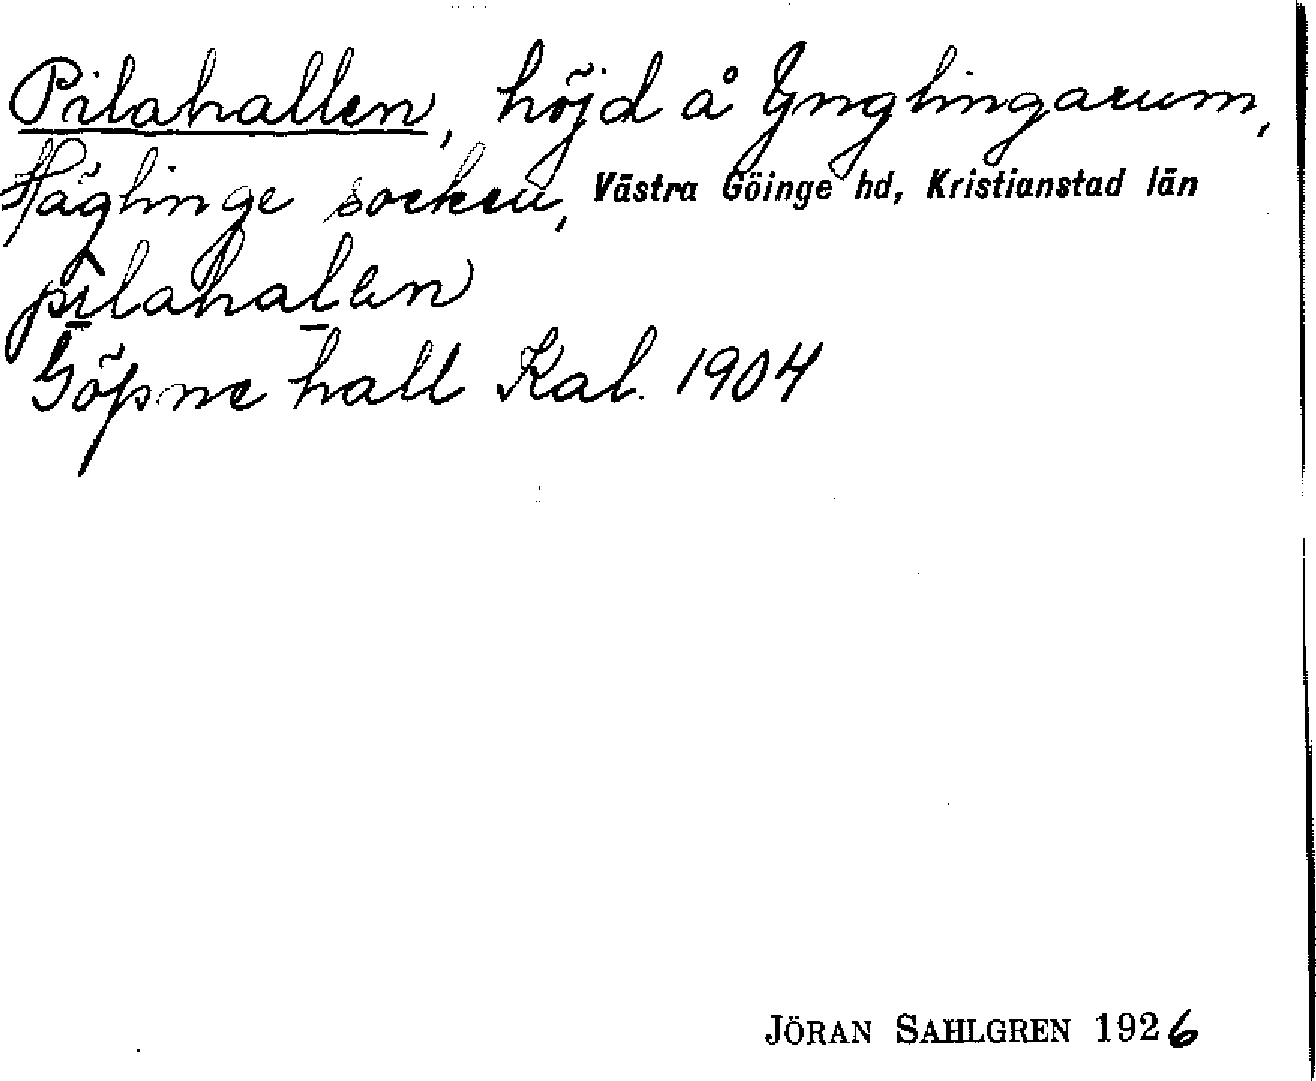 Pilahallen, höjd å Ynglingarum,
Häglinge socken, Västra Göinge hd, Kristianstad län
pilahalen
Göpne hall Kal. 1904
JÖRAN SAHLGREN 1926